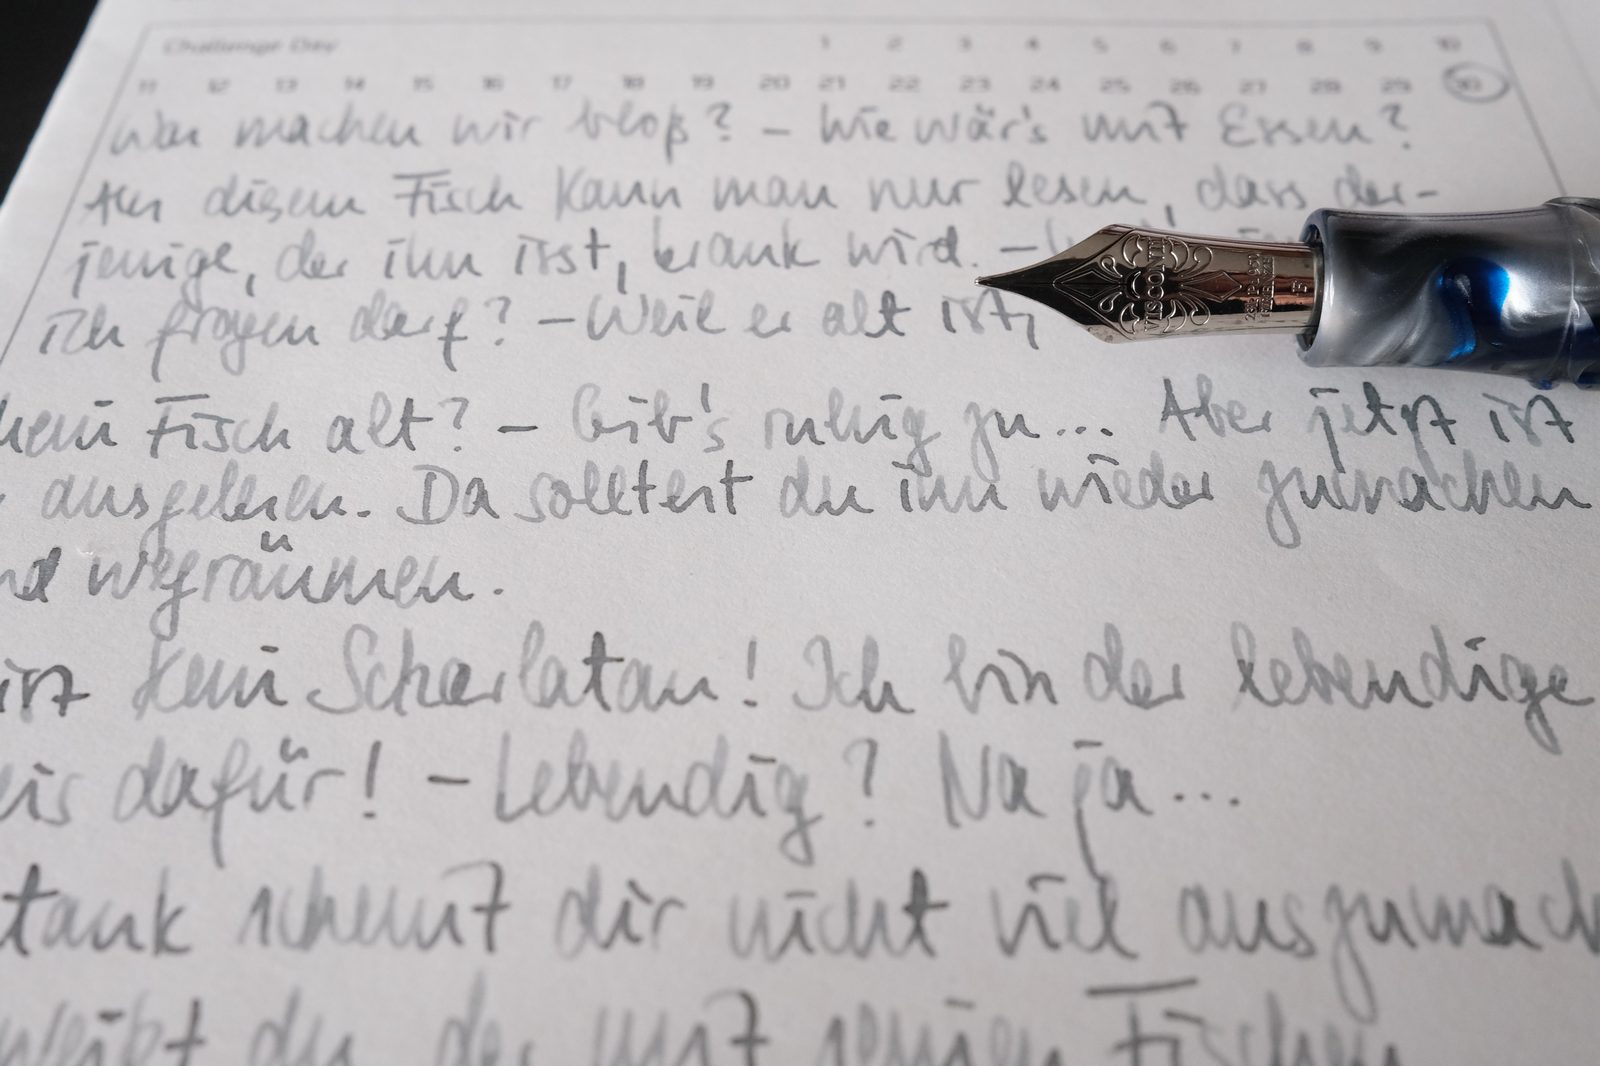 Challenge Day 1 2 3 4 5 6 7 8 9 10
11 12 13 14 15 16 17 18 19 20 21 22 23 24 25 26 27 28 29 30
Was machen wir bloß? – Wie wär's mit Essen?
Aus diesem Fisch kann man nur lesen, dass der-
jenige, der ihn isst, krank wird. –
ich fragen darf? – Weil er alt ist,
VISCONTI
mein Fisch alt? – Gib's ruhig zu... Aber jetzt ist
ausgelesen. Da solltest du ihn wieder zumachen
und wegräumen.
ist kein Scharlatan! Ich bin der lebendige
eis dafür! – Lebendig? Na ja...
tank scheint dir nicht viel auszumach
du der mit seinen Fischen